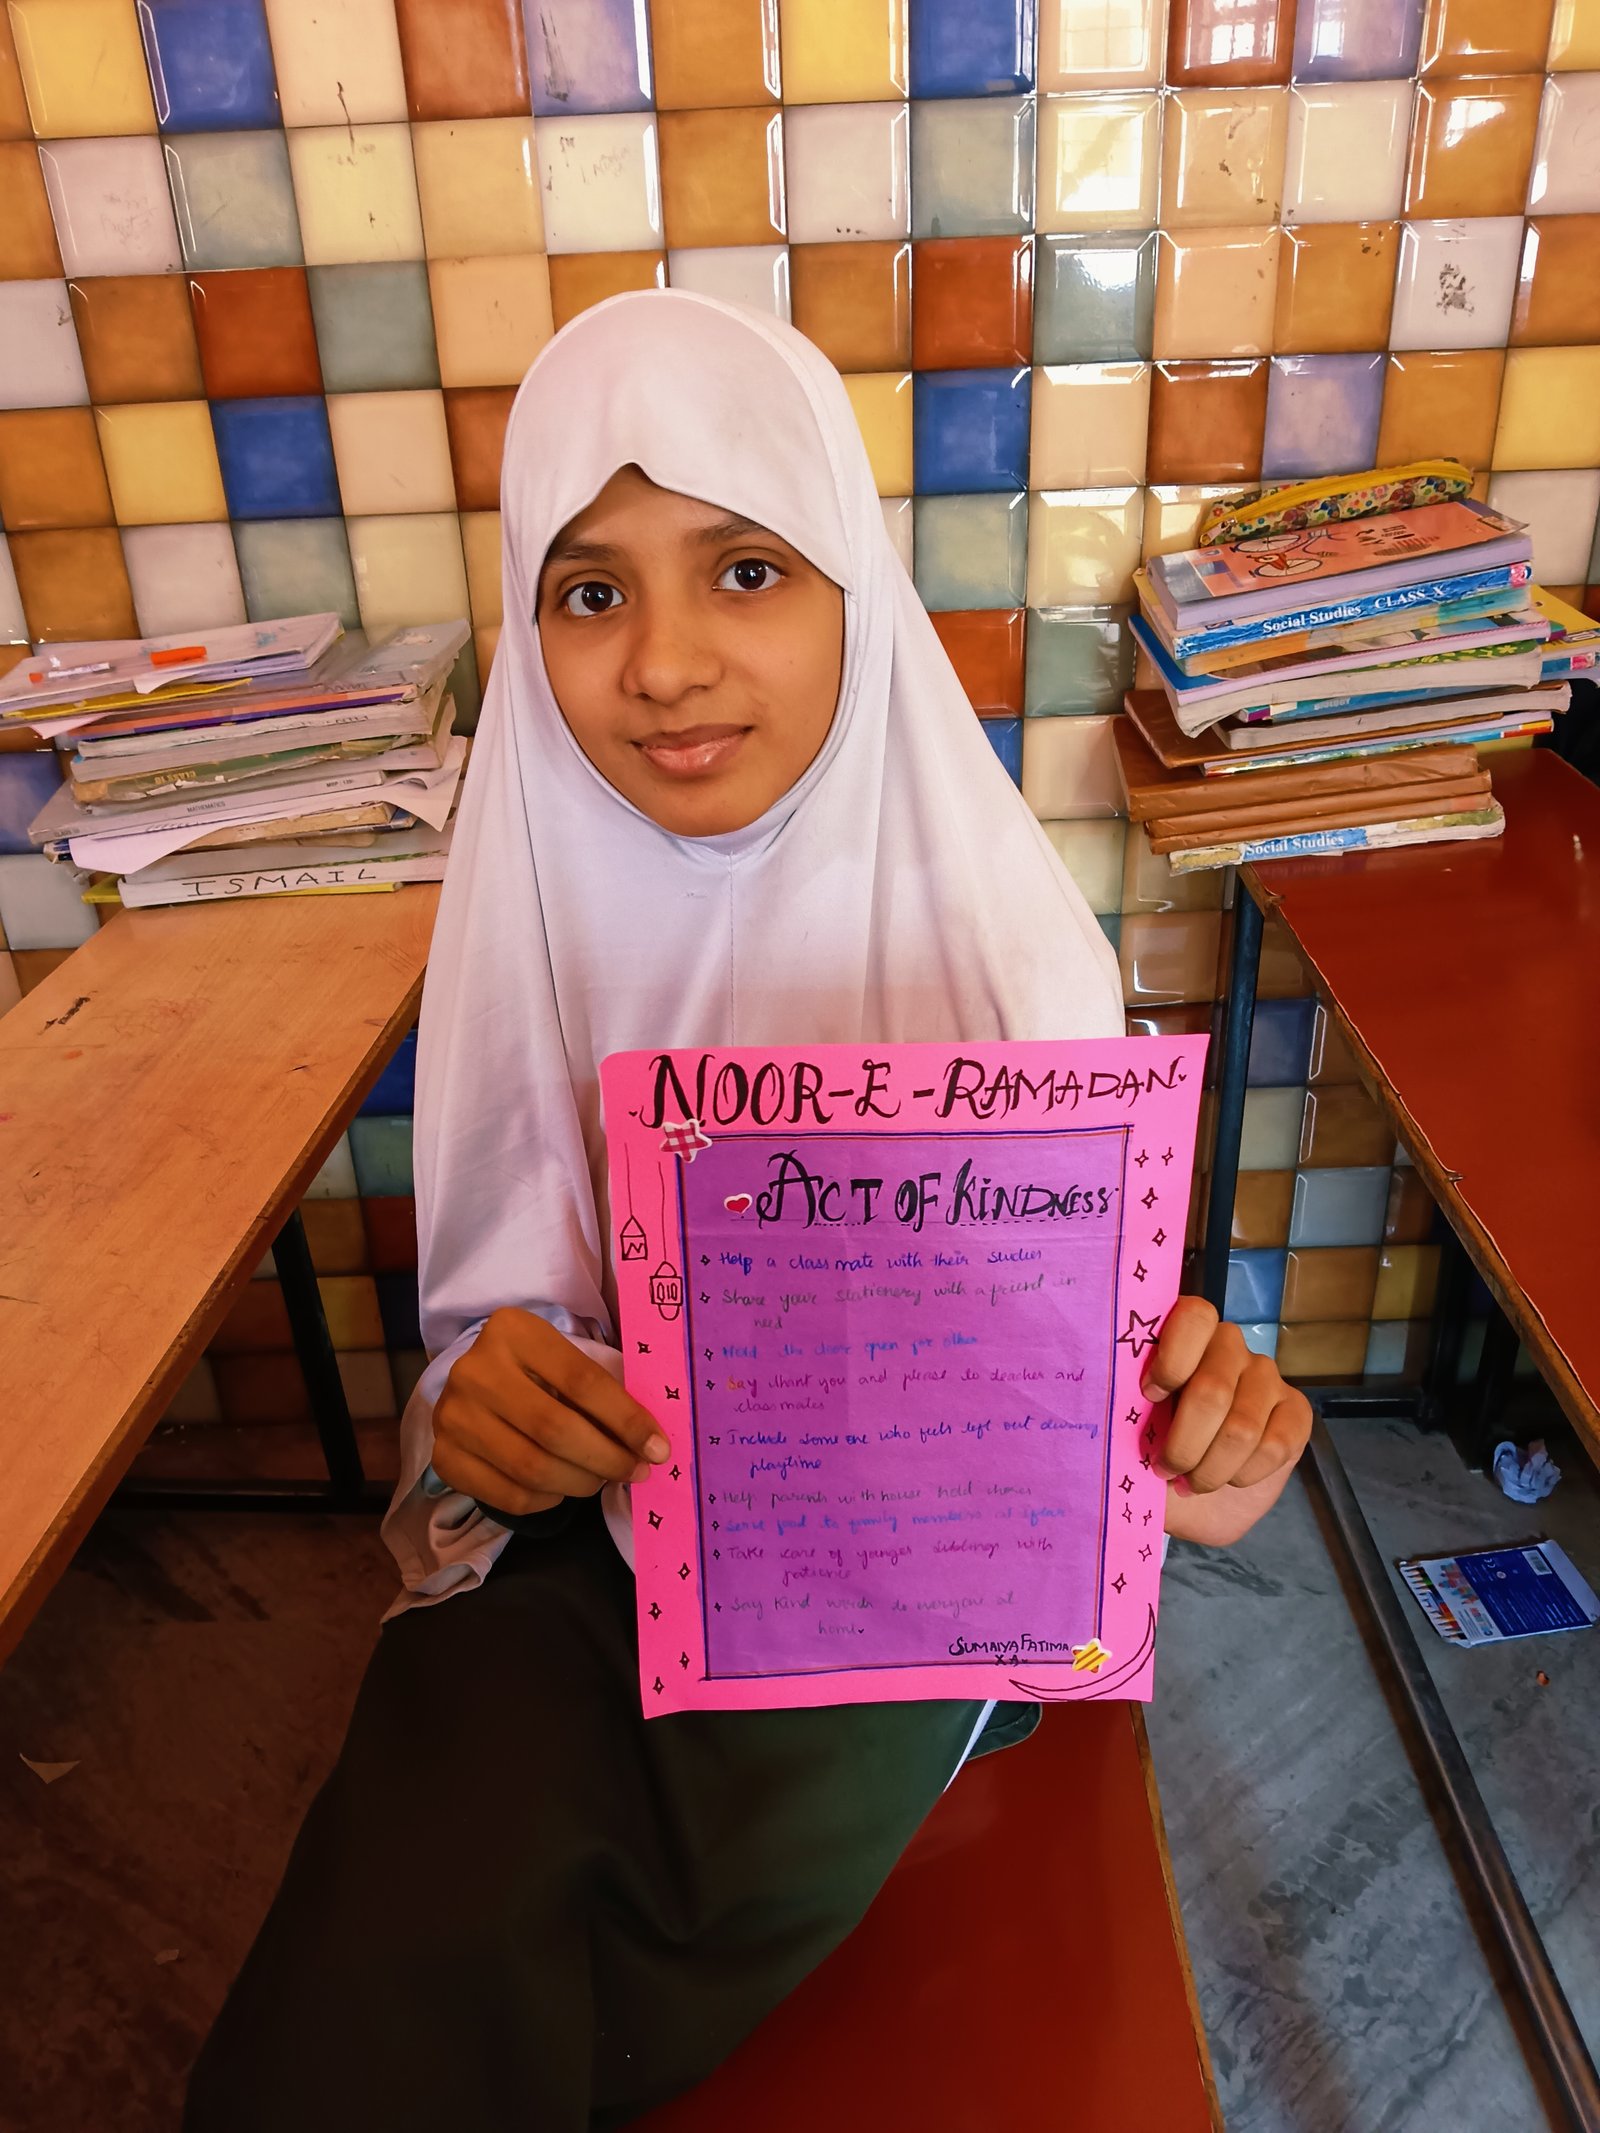 NOOR-E-RAMADAN
ACT OF KINDNESS
Help a classmate with their studies
Share your stationery with a friend in
need
Hold the door open for other
Say thank you and please to teacher and
classmates
Include some one who feels left out during
playtime
Help parents with house hold chores
Serve food to family members at iftar
Take care of younger siblings with
patience
Say kind words to everyone at
home.
SUMAIYA FATIMA
X A
Social Studies CLASS X
BIOLOGY
Social Studies
MATHEMATICS
ISMAIL